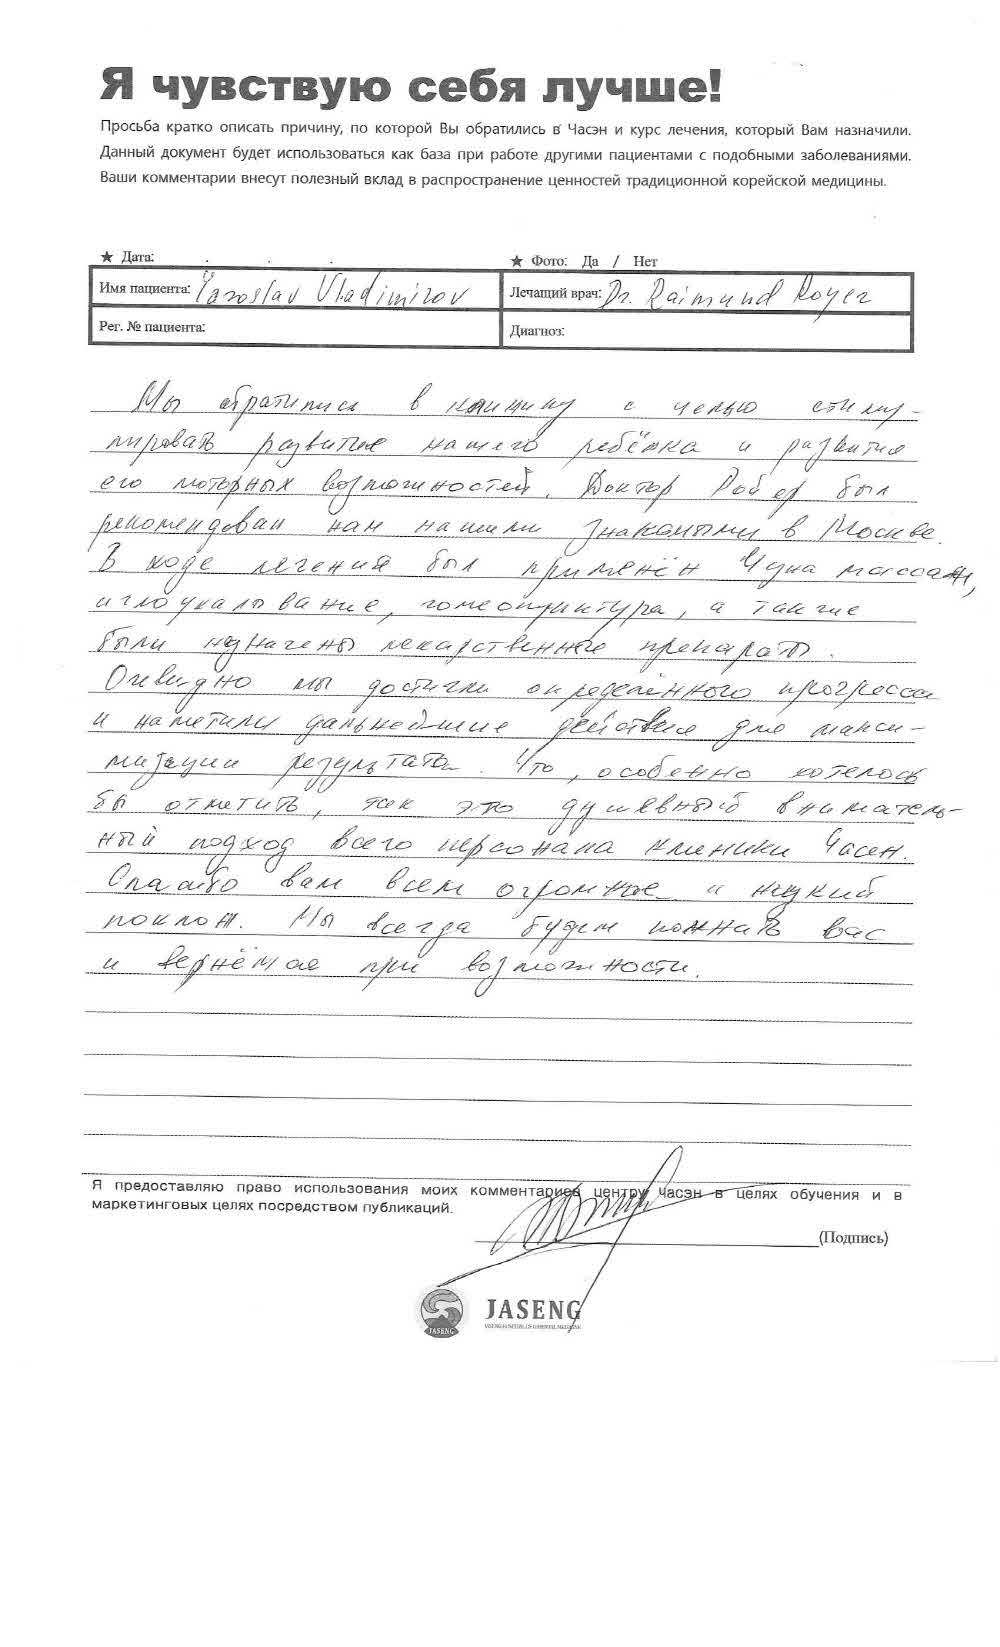 Я чувствую себя лучше!
Просьба кратко описать причину, по которой Вы обратились в Часэн и курс лечения, который Вам назначили.
Данный документ будет использоваться как база при работе другими пациентами с подобными заболеваниями.
Ваши комментарии внесут полезный вклад в распространение ценностей традиционной корейской медицины.
★ Дата: . . . ★ Фото: Да / Нет
Имя пациента: Yaroslav Vladimirov Лечащий врач: Dr. Raimund Royer
Рег. № пациента: Диагноз:
Мы обратились в клинику с целью стиму-
лировать развитие нашего ребёнка и развития
его моторных возможностей. Доктор Ройер был
рекомендован нам нашими знакомыми в Москве.
В ходе лечения был применён Чуна массаж,
иглоукалывание, а также
были назначены лекарственные препараты.
Очевидно мы достигли определённого прогресса
и наметили дальнейшие действия для макси-
мизации результата. Что, особенно хотелось
бы отметить, так это душевный вниматель-
ный подход всего персонала клиники Часен.
Спасибо вам всем огромное и низкий
поклон. Мы всегда будем помнить вас
и вернёмся при возможности.
Я предоставляю право использования моих комментариев центру Часэн в целях обучения и в
маркетинговых целях посредством публикаций.
(Подпись)
JASENG
JASENG